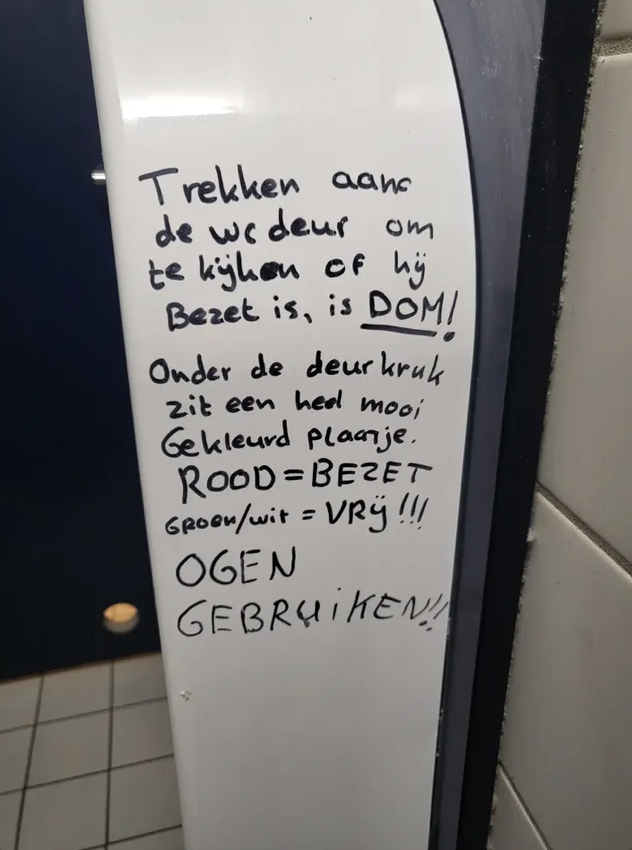 Trekken aan
de wc deur om
te kijken of hij
Bezet is, is DOM!
Onder de deurkruk
zit een heel mooi
Gekleurd plaatje.
ROOD = BEZET
GROEN/wit = VRIJ!!!
OGEN
GEBRUiKEN!!